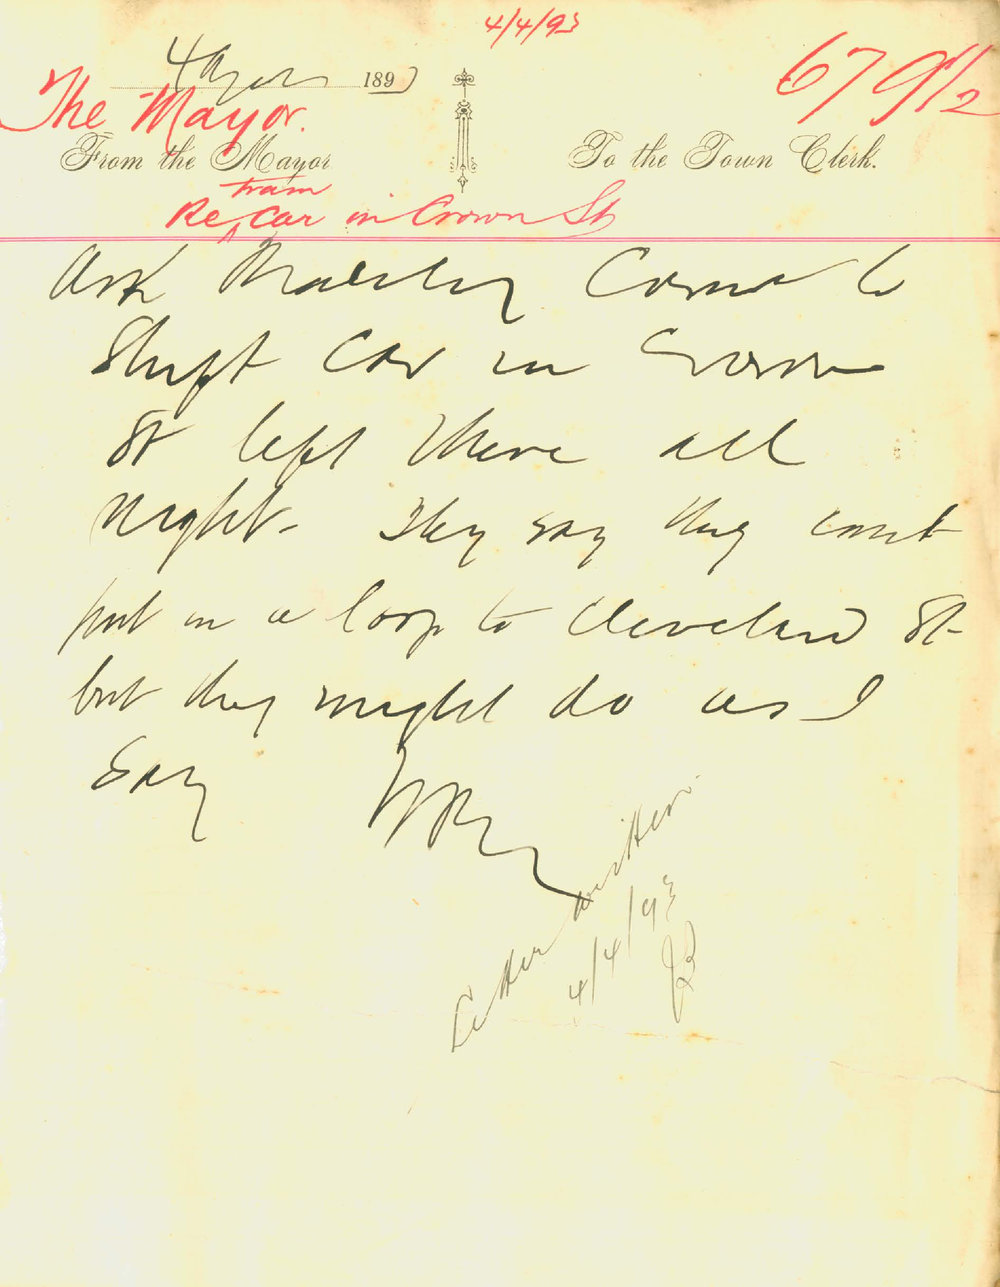 4/4/93
679 1/2
4 April 1893
The Mayor.
From the Mayor
To the Town Clerk.
Re tram Car in Crown St
Ask Malcolm Comr to
Shift Car in Crown
St left there all
Night. They say they cant
put in a loop to Cleveland St
but they might do as I
Say
Letter written
4/4/93
JB